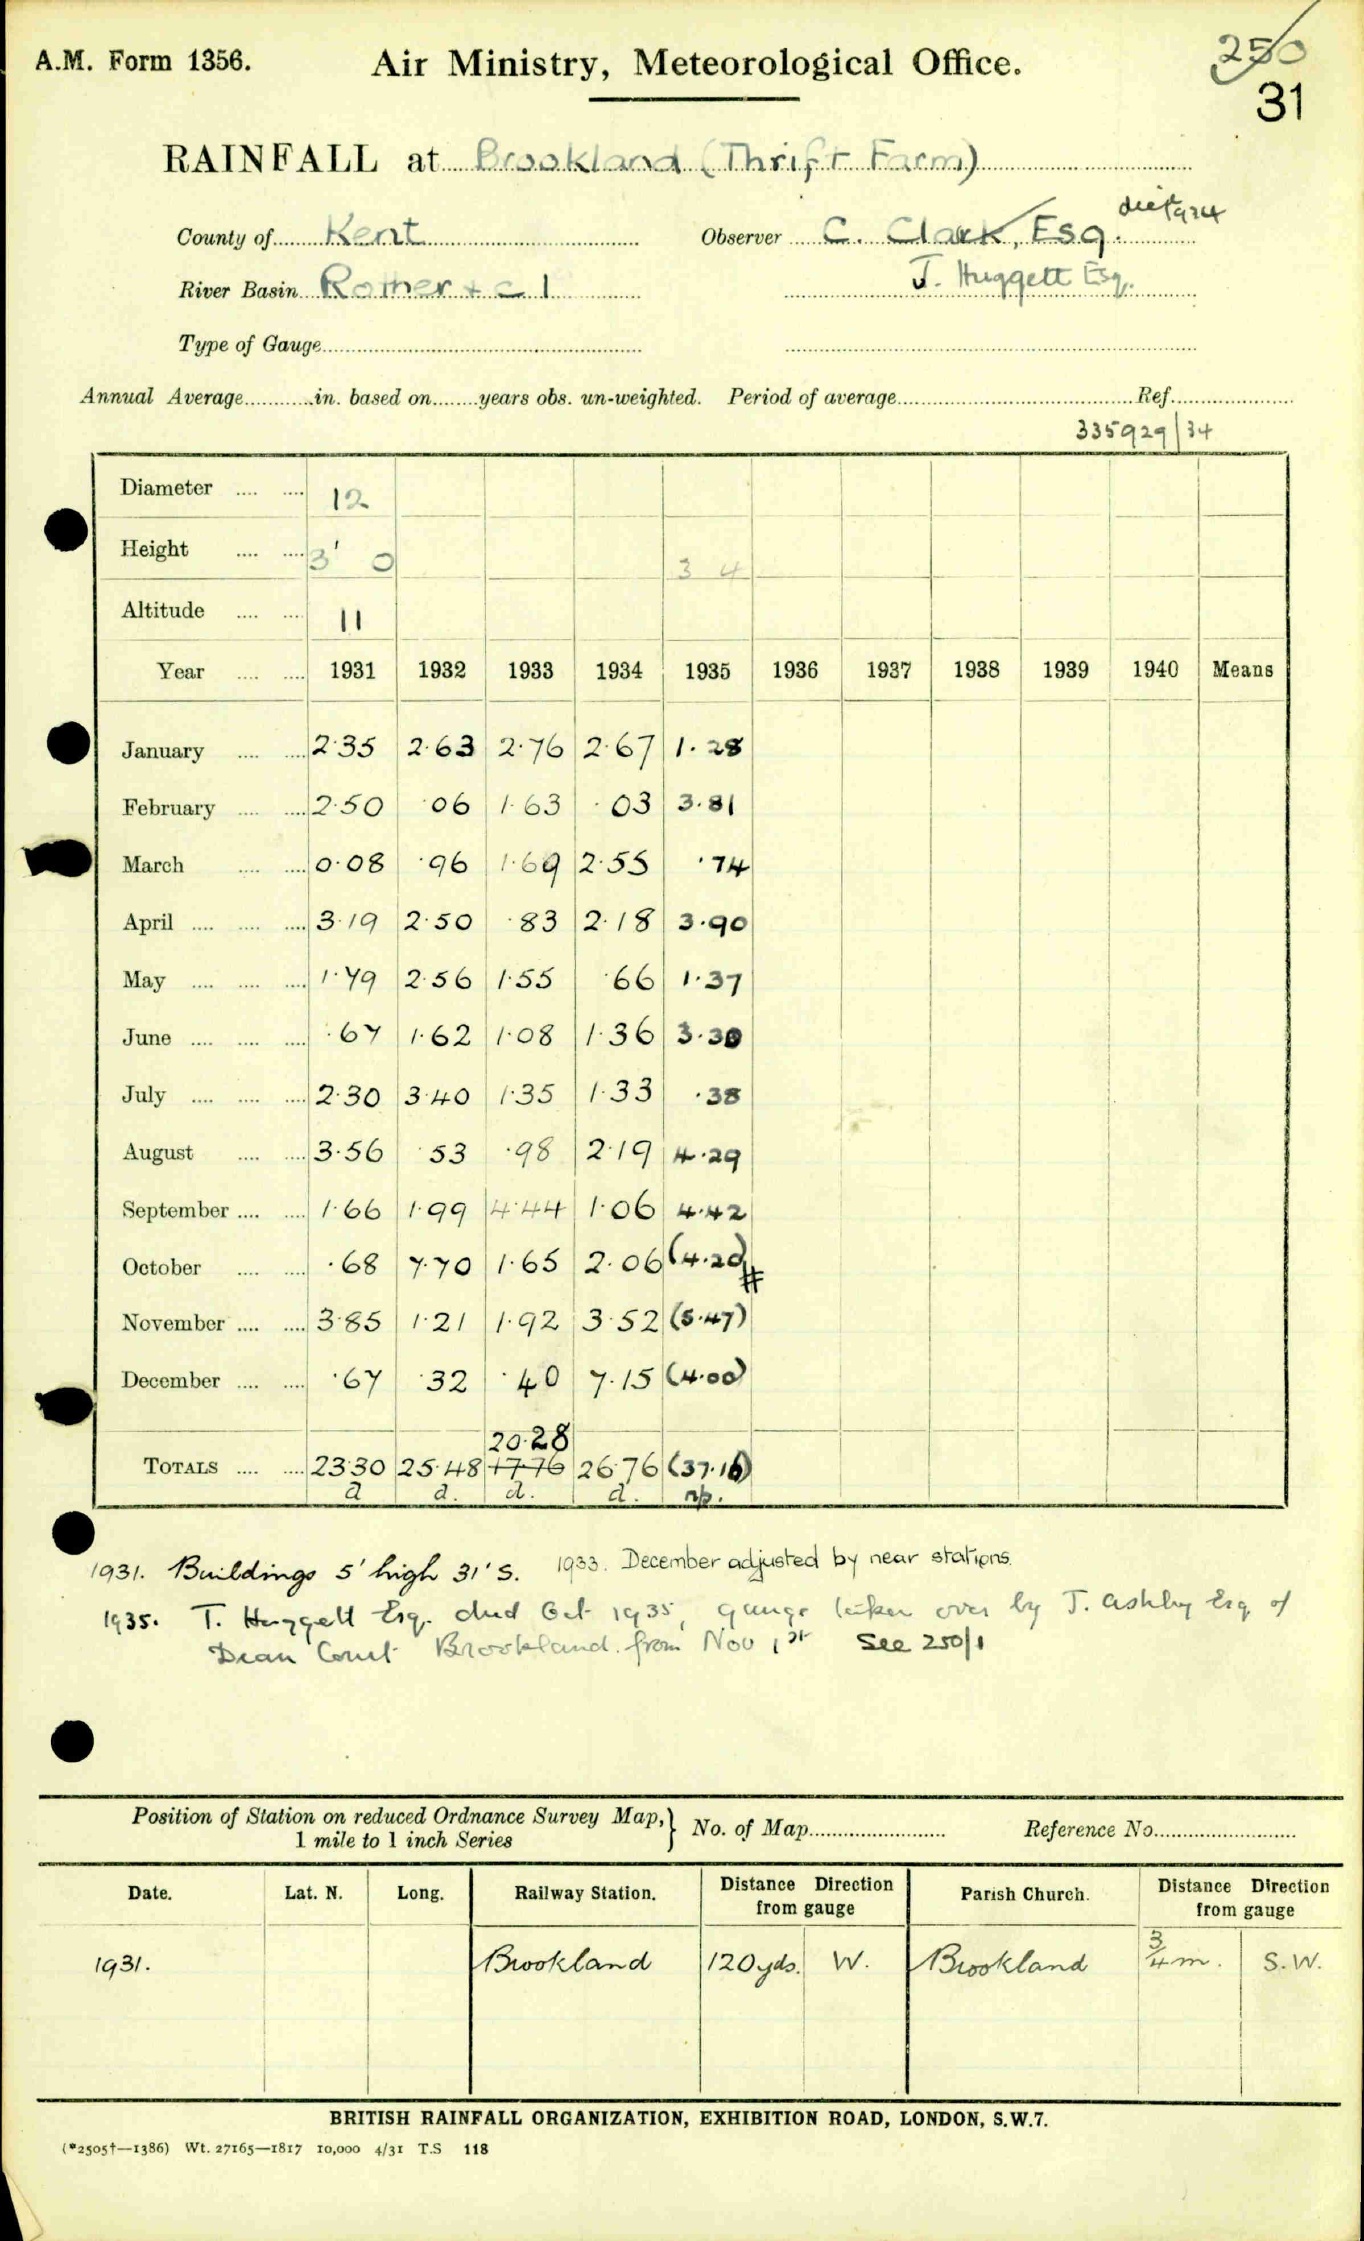 A.M. Form 1356.
Air Ministry, Meteorological Office.
250
31
RAINFALL at Brookland (Thrift Farm)
County of Kent
Observer C. Clark, Esq. died 1934
River Basin Rother + c 1
J. Huggett Esq.
Type of Gauge
Annual Average in. based on years obs. un-weighted. Period of average Ref.
335929/34
Diameter 12
Height 3' 0 3 4
Altitude 11
Year 1931 1932 1933 1934 1935 1936 1937 1938 1939 1940 Means
January 2.35 2.63 2.76 2.67 1.28
February 2.50 .06 1.63 .03 3.81
March 0.08 .96 1.69 2.55 .74
April 3.19 2.50 .83 2.18 3.90
May 1.79 2.56 1.55 .66 1.37
June .67 1.62 1.08 1.36 3.30
July 2.30 3.40 1.35 1.33 .38
August 3.56 .53 .98 2.19 4.29
September 1.66 1.99 4.44 1.06 4.42
October .68 7.70 1.65 2.06 (4.20) #
November 3.85 1.21 1.92 3.52 (5.47)
December .67 .32 .40 7.15 (4.00)
20.28
TOTALS 23.30 25.48 17.76 26.76 (37.16)
a d. d. d. np.
1931. Buildings 5' high 31' S. 1933. December adjusted by near stations.
1935. T. Huggett Esq. died Oct 1935, gauge taken over by J. Ashby Esq. of
Dean Court Brookland. from Nov 1st See 250/1
Position of Station on reduced Ordnance Survey Map, 1 mile to 1 inch Series } No. of Map Reference No.
Date. Lat. N. Long. Railway Station. Distance Direction from gauge Parish Church. Distance Direction from gauge
1931. Brookland 120yds. W. Brookland 3/4 m. S.W.
BRITISH RAINFALL ORGANIZATION, EXHIBITION ROAD, LONDON, S.W.7.
(*2505†—1386) Wt. 27165—1817 10,000 4/31 T.S 118